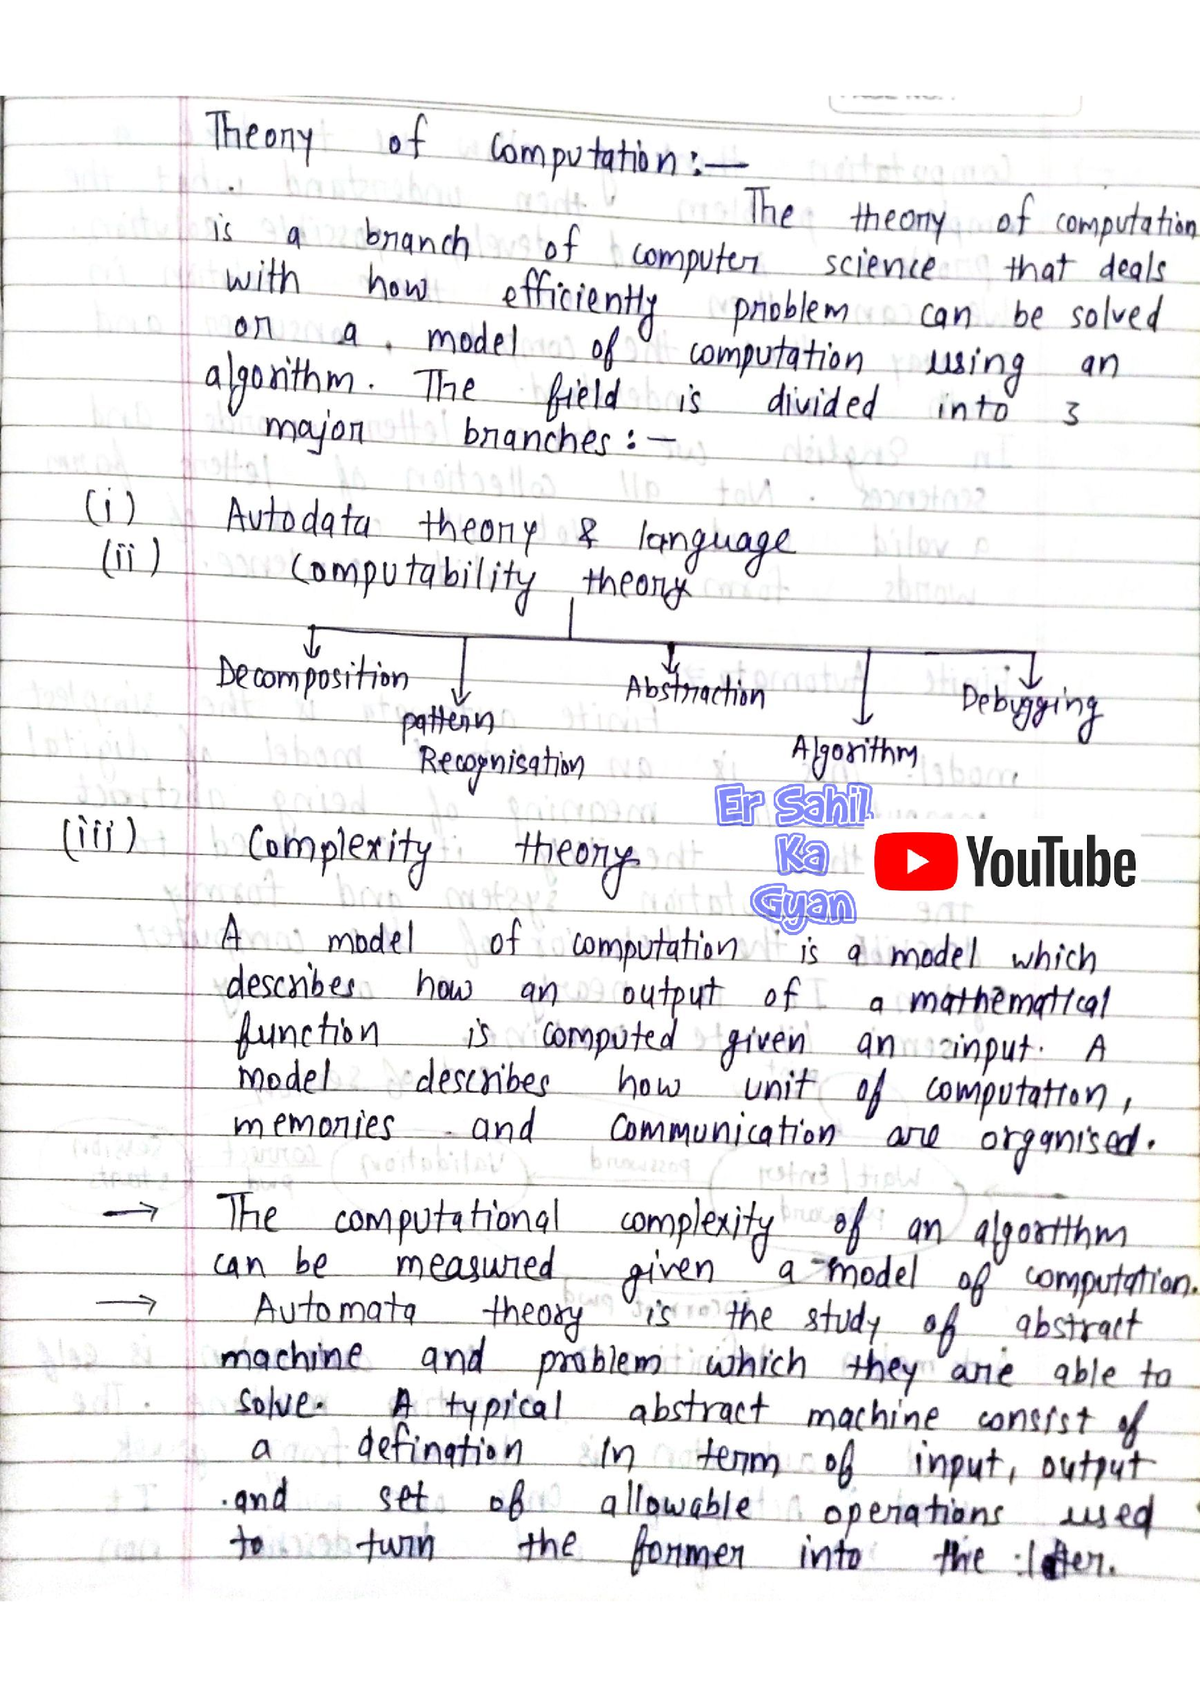 Theory of Computation :—
The theory of computation
is a branch of computer science that deals
with how efficiently problem can be solved
on a model of computation using an
algorithm. The field is divided into 3
major branches :-
(i) Autodata theory & language
(ii) Computability theory
Decomposition
pattern
Recognisation
Abstraction
Algorithm
Debugging
Er Sahil
Ka
Gyan
YouTube
(iii) Complexity theory
A model of computation is a model which
describes how an output of a mathematical
function is computed given an input. A
model describes how unit of computation,
memories and communication are organised.
→ The computational complexity of an algorithm
can be measured given a model of computation.
→ Automata theory is the study of abstract
machine and problem which they are able to
solve. A typical abstract machine consist of
a defination in term of input, output
and set of allowable operations used
to turn the former into the later.